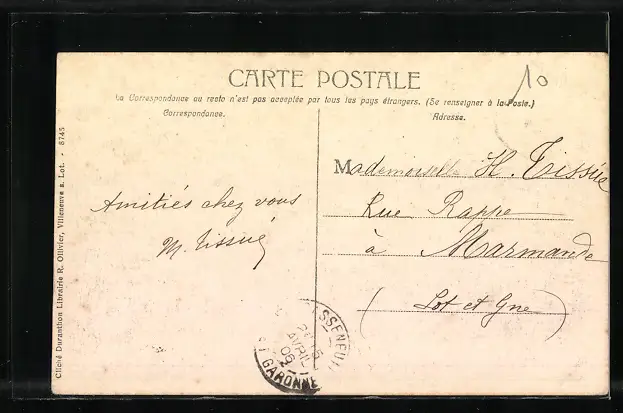 CARTE POSTALE
La Correspondance au recto n'est pas acceptée par tous les pays étrangers. (Se renseigner à la Poste.)
Correspondance.
Adresse.
10
Amitiés chez vous
M. Tissié
Mademoiselle H. Tissié
Rue Rappe
à Marmande
(Lot et Gne)
SSENEUI
AVRIL
06
GARONNE
Cliché Duranthon Librairie R. Ollivier, Villeneuve s. Lot. - 8745